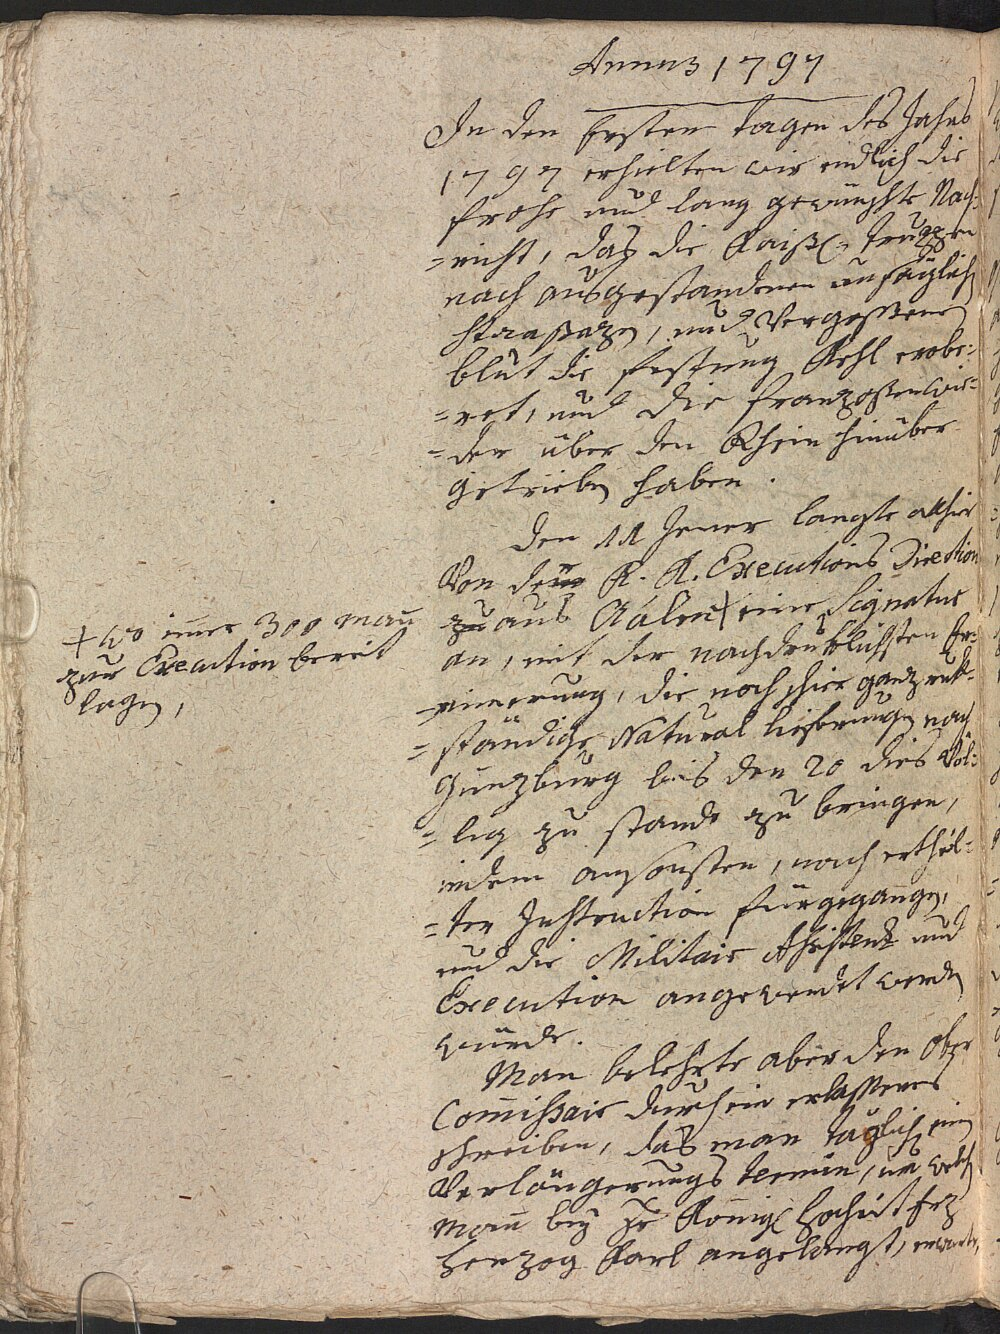 Anno 1797
In den Ersten tagen des Jahrs
1797 erhielten wir endlich die
frohe und lang gewünschte Nach-
=richt, das die Kaißl. truppen
nach ausgestandenen unsäglich
strapazen, und Vergoßenen
blut die festung Kehl erobe-
=ret, und die Franzoßen wie-
=der über den Rhein hinüber
getrieben haben.
Den 11 Jener langte allhier
Von der K. K. Executions Direction
zu aus Aalen + eine Signatur
an, mit der nachdruklichsten Er-
=innerung, die noch hier ganz rük-
=ständige Natural lieferungen nach
Günzburg bis den 20 dies Völ-
=lig zu stande zu bringen,
indem ansonsten, nach ertheil-
=ter Instruction fürgegangen,
und die Militair Assistenz und
Execution angewendet werden
würde.
+ wo immer 300 man
zur Execution bereit
lagen,
Man belehrte aber den Ober
Commissair durch ein erlassenes
schreiben, das man täglich ein
Verlängerungs termin, um welch
man bey Sr Königl Hocheit Erz
Herzog Karl angelangt, erwarte,